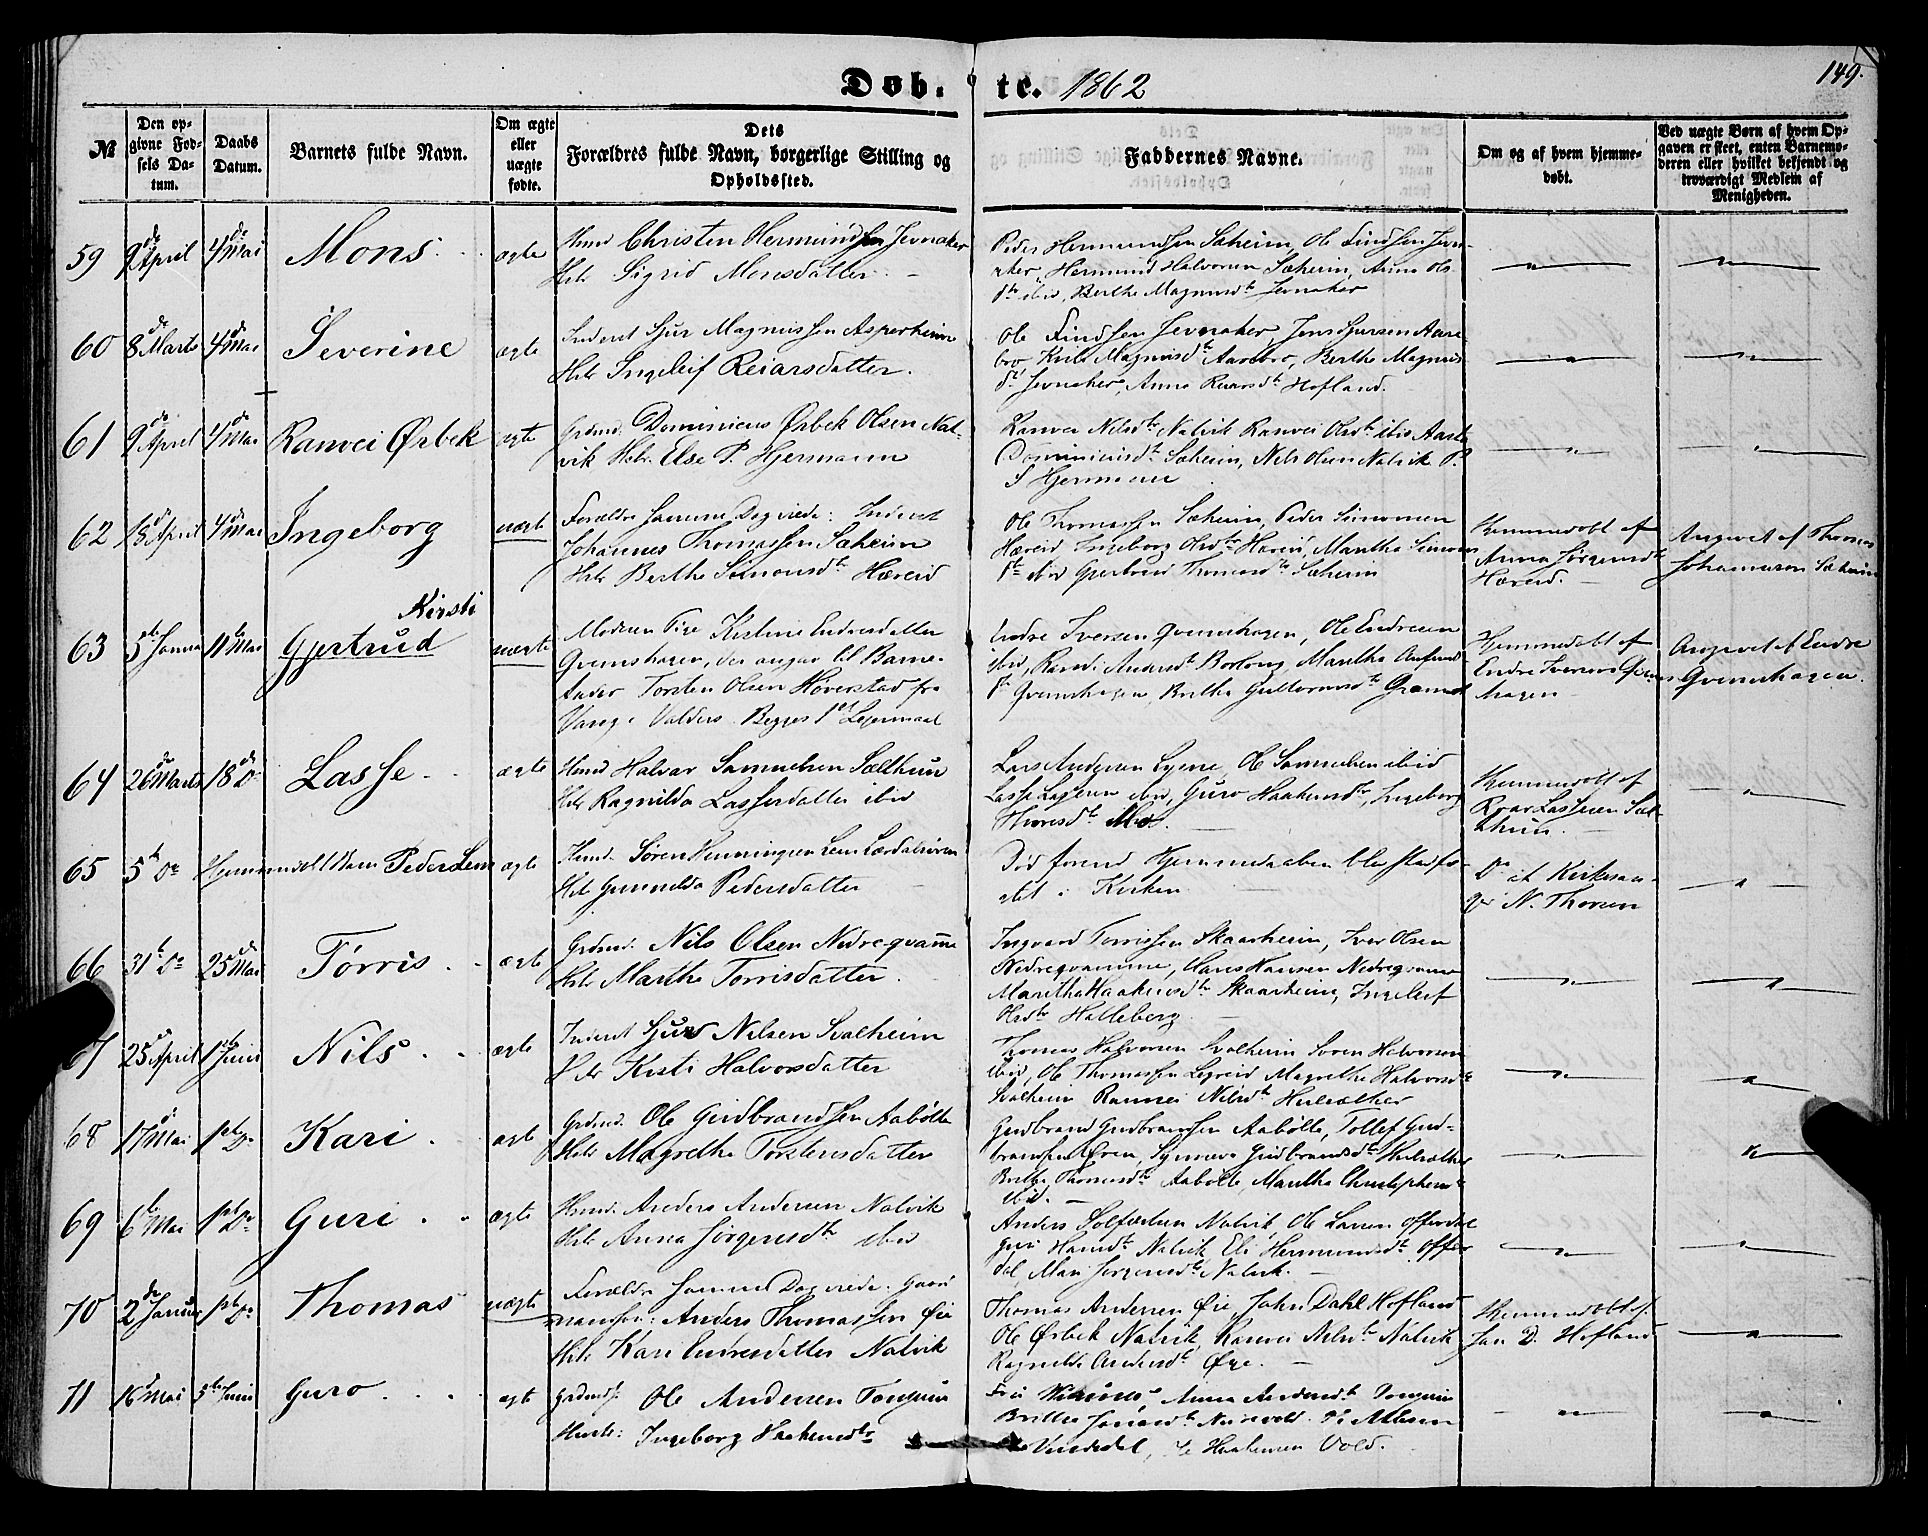 149.
Døb. te. 1862
№
Den op-
givne Fød-
sels Da-
tum.
Daabs
Datum.
Barnets fulde Navn.
Om ægte
eller
uægte
fødte.
Dets
Forældres fulde Navn, borgerlige Stilling og
Opholdssted.
Faddernes Navne.
Om og af hvem hjemme-
døbt.
Ved uægte Børn af hvem Op-
gaven er skeet, enten Barnemo-
deren eller hvilket bekjendt og
troværdigt Medlem af
Menigheden.
59 9de April 4de Mai Mons. ægte
Christen Hermundsen Jevnaker
Sigrid Monsdatter
Peder Hermundsen Sæheim, Ole Findsen Jevn-
aker, Hermund Halvorsen Sæheim, Anna Ols-
dtr ibid, Berthe Magnusdtr Jevnaker
60 8de Marts 4de Mai Severine ægte
Inderst Sjur Magnussen Asperheim
Ingeleif Reiarsdatter.
Ole Findsen Jevnaker, Jens Sjursen Aare
bro, Magnusdtr Aarebro, Berthe Magnus
dtr Jevnaker, Anna Reiarsdtr Hofland.
61 9de April 4de Mai Ranvei Ørbek ægte
Grdmd. Dominicus Ørbek Olsen Nat-
vik Hstr. Else P. Hjermann
Ranvei Nilsdtr Natvik Ranvei Olsdtr ibid
Dominicusdtr Sæheim, Nils Olsen Natvik P.
S Hjermann
62 18de April 4de Mai Ingeborg uægte
Forældre samme Dag viede: Inderst
Johannes Thomassen Sæheim
Berthe Simonsdtr Hæreid
Ole Thomassen Sæheim, Peder Simonsen
Hæreid Ingeborg Olsdtr Hæreid, Martha Simons
dtr ibid Gjertrud Thomasdtr Sæheim
Hjemmedøbt af
Anna Jørgensdtr
Hæreid.
Angivet af Thomas
Johannesen Sæheim
Kirsti
63 5te Janua 11te Mai Gjertrud uægte
Moderen Pige Kirstine Endresdatter
Qvemshagen, der angav til Barne-
fader Torsten Olsen Høverstad fra
Vang i Valders. Begges 1ste Leiermaal
Endre Iversen Qvemshagen, Ole Endresen
ibid, Randi Andersdtr Borlaug, Martha
dtr Qvemshagen, Brithe Guttormsdtr
Hjemmedøbt af
Endre Iversen Qvems
hagen
Angivet af Endre
Qvemshagen.
64 26de Marts 18de Do Lasse. ægte
Halvar Samuelsen Sælthun
Ragnilda Lassesdatter ibid
Lars Andersen Ljøsne, Ole Samuelsen ibid
Lasse Lassesen ibid, Guro Haakensdtr, Ingeborg
Thoresdtr Mo.
Hjemmedøbt af
Roar Lassesen Sæl-
thun.
65 5te Do Hjemmedøbt Navn Peder Lem ægte
Søren Henningsen Lem Lærdalsøren
Gunnilda Pedersdatter
Død førend Hjemmedaaben blev stadfæ-
stet i Kirken
Do af Kirkesan-
ger N. Thorsen
66 31te Do 25de Mai Tørris. ægte
Grdmd. Nils Olsen Nedreqvamme
Martha Torrisdatter.
Ingvard Torrissen Skaarheim, Iver Olsen
Nedreqvamme, Hans Hansen Nedreqvamme
Maritha Haakensdtr Skaarheim, Ingeleif
Olsdtr Hatleberg.
67 25de April 1ste Juni Nils. ægte
Inderst Sjur Nilsen Svalheim
Kirsti Halvorsdatter
Thomas Halvorsen Svalheim Søren Halvorsen
ibid, Ole Thomassen Legreid Magrethe Halvorsdtr
Svalheim Ranvei Nilsdtr
68 17de Mai 1ste Do Kari. ægte
Grdmd. Ole Gudbrandsen Aabølte
Magrethe Torstensdatter
Gudbrand Gudbransen Aabølte, Tollef Gud-
brandsen Øren, Synneva Gudbrandsdtr
Brithe Thomasdtr Aabølte, Martha Christophersdtr
ibid.
69 6te Mai 1ste Do Guri. ægte
Anders Andersen Natvik
Anna Jørgensdtr ibid
Anders Solfæstsen Natvik, Ole Larsen Offerdal
Guri Hansdtr Natvik Eli Hermundsdtr Offer
dal, Mari Jørgensdtr Natvik.
70 2de Januar 1ste Do Thomas uægte
Forældre samme Dag viede: Gaard
mandssøn: Anders Thomassen Øie
Kari Endresdatter Natvik
Thomas Andersen Øie, John Dahl Hofland
Ole Ørbek Natvik, Ranvei Nilsdtr Natvik
Ragnilda Andersdtr Øie.
Hjemmedøbt af
Jan D. Hofland
71 16de Mai 5te Juni Guro. ægte
Ole Andersen Tønjum
Hustr: Ingeborg Haakensdtr
Anna Andersdtr Tønjum
Brithe
Vindedal, Haakensen Vold.